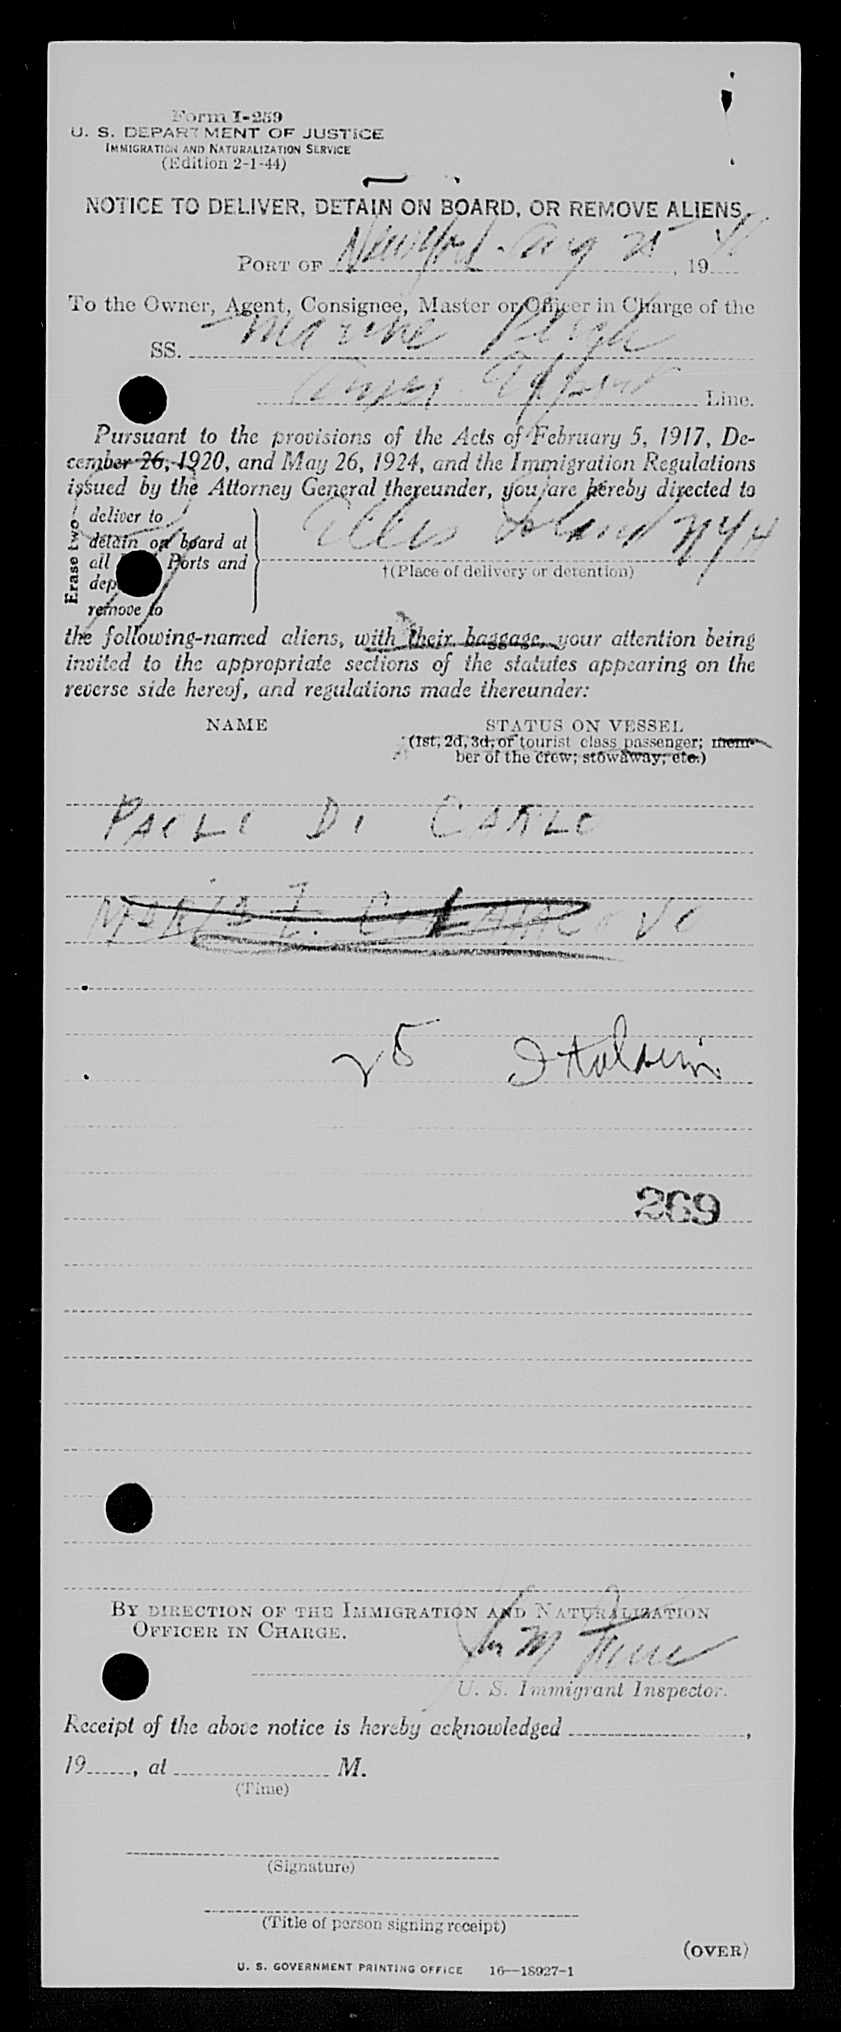 Form I-259
U. S. DEPARTMENT OF JUSTICE
IMMIGRATION AND NATURALIZATION SERVICE
(Edition 2-1-44)
NOTICE TO DELIVER, DETAIN ON BOARD, OR REMOVE ALIENS
PORT OF New York Aug 25, 19
To the Owner, Agent, Consignee, Master or Officer in Charge of the
SS. Marine
Amer. Export Line.
Pursuant to the provisions of the Acts of February 5, 1917, De-
cember 26, 1920, and May 26, 1924, and the Immigration Regulations
issued by the Attorney General thereunder, you are hereby directed to
Erase two
deliver to
detain on board at
all Ports and
remove to
Ellis Island NYH
†(Place of delivery or detention)
the following-named aliens, with their baggage, your attention being
invited to the appropriate sections of the statutes appearing on the
reverse side hereof, and regulations made thereunder:
NAME STATUS ON VESSEL
(1st, 2d, 3d, or tourist class passenger; mem-
ber of the crew; stowaway; etc.)
PAOLI DI CARLO
MARIA
25
269
BY DIRECTION OF THE IMMIGRATION AND NATURALIZATION
OFFICER IN CHARGE.
U. S. Immigrant Inspector.
Receipt of the above notice is hereby acknowledged ,
19 , at M.
(Time)
(Signature)
(Title of person signing receipt)
(OVER)
U. S. GOVERNMENT PRINTING OFFICE 16—18927-1